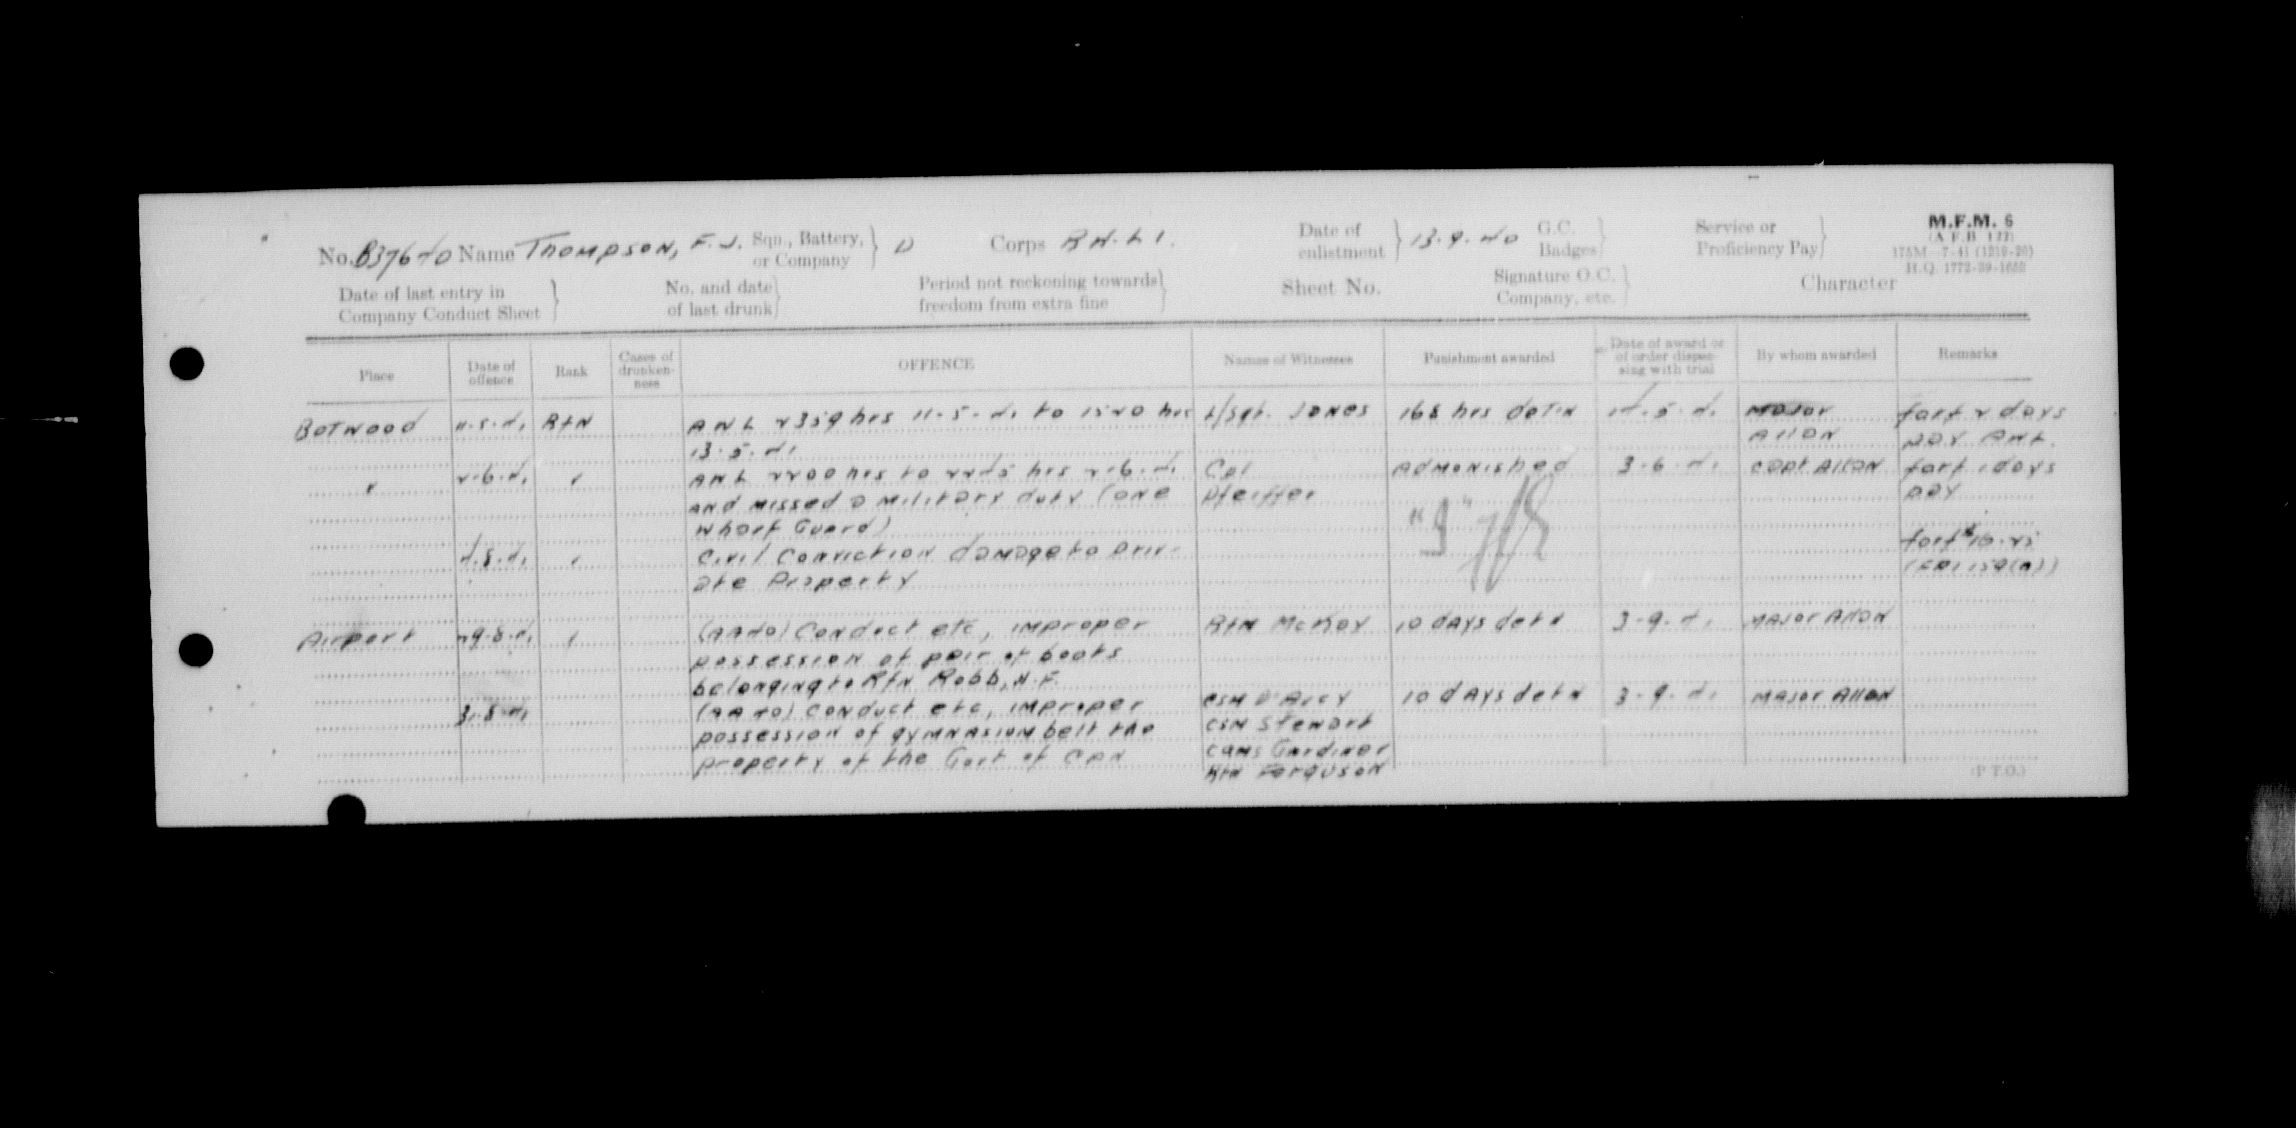 No. B37640 Name THOMPSON, F. J. Sqn., Battery, or Company } D Corps R H. L I. Date of enlistment } 13.9.40 G.C. Badges } Service or Proficiency Pay } M.F.M. 6
(A F.B 122)
175M—7-41 (1210-20)
H.Q. 1772-39-1652
Date of last entry in Company Conduct Sheet } No. and date of last drunk } Period not reckoning towards freedom from extra fine } Sheet No. Signature O.C. Company, etc. } Character
Place Date of offence Rank Cases of drunken-ness OFFENCE Names of Witnesses Punishment awarded Date of award or of order dispen-sing with trial By whom awarded Remarks
BOTWOOD 11.5.41 Rfn AWL 2359 hrs 11-5-41 to 1520 hrs L/Sgt. Jones 168 hrs detn 14.5.41 Major forf 2 days
13.5.41 Allan pay AWL.
" 2.6.41 " AWL 2200 hrs to 2245 hrs 2-6-41 Cpl Admonished 3.6.41 Capt. Allan forf 1 days
and missed a military duty (one Pfeiffer pay
Wharf Guard) "J"
4.8.41 " Civil Conviction damage to priv- forf $16.25
ate Property (FRI 159(a))
Airport 29.8.41 " (AA40) Conduct etc, improper Rfn McKay 10 days detn 3-9-41 Major Allan
possession of pair of boots
belonging to Rfn Robb, H.F.
31.8.41 (AA40) Conduct etc, improper CSM D'Arcy 10 days detn 3-9-41 Major Allan
possession of gymnasium belt the CSM Stewart
property of the Govt of Can CQMS Gardiner
Rfn Ferguson
(P.T.O.)